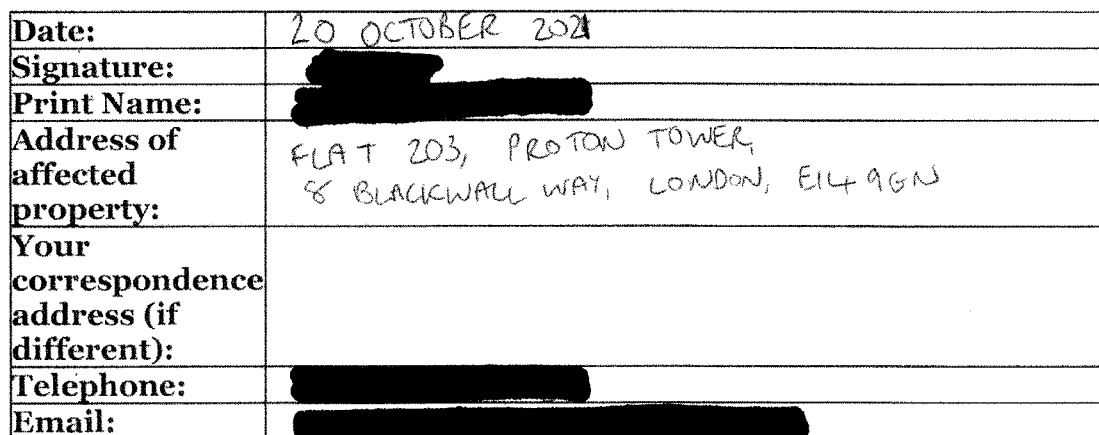 Date: 20 OCTOBER 2021
Signature:
Print Name:
Address of
affected
property:
FLAT 203, PROTON TOWER,
8 BLACKWALL WAY, LONDON, E14 9GN
Your
correspondence
address (if
different):
Telephone:
Email: